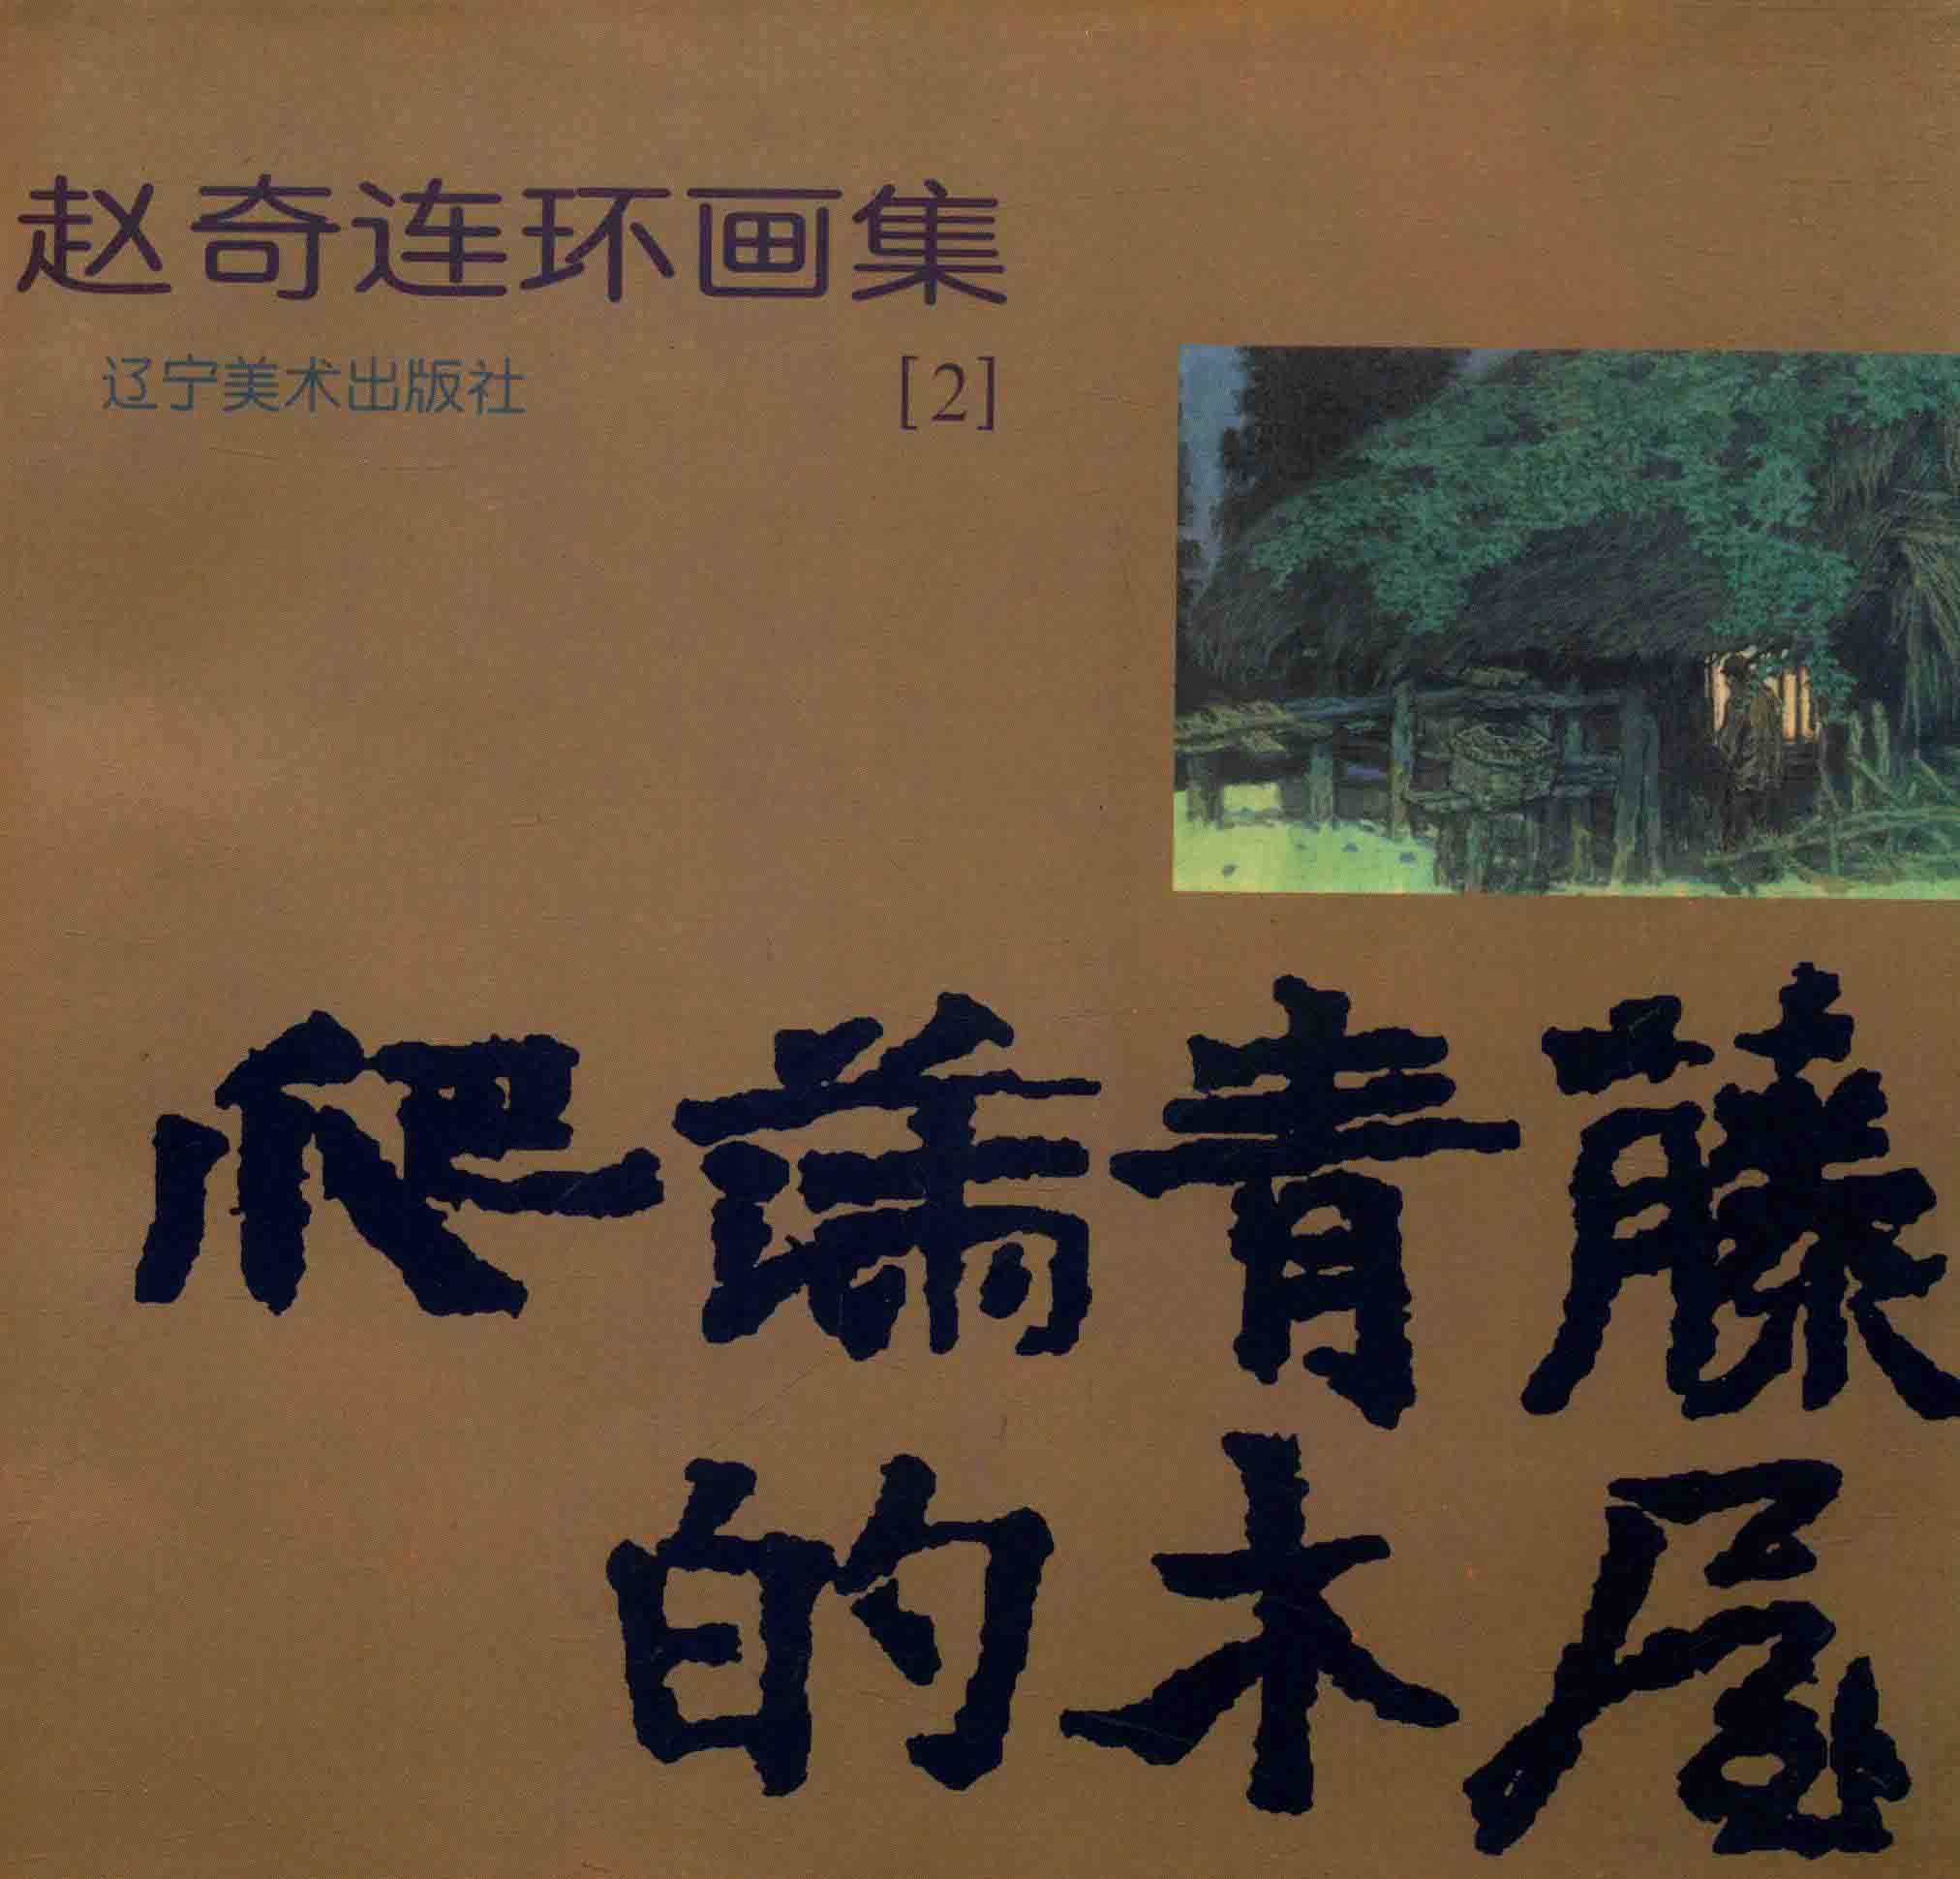 赵奇连环画集
辽宁美术出版社 [2]
爬满青藤
的木屋